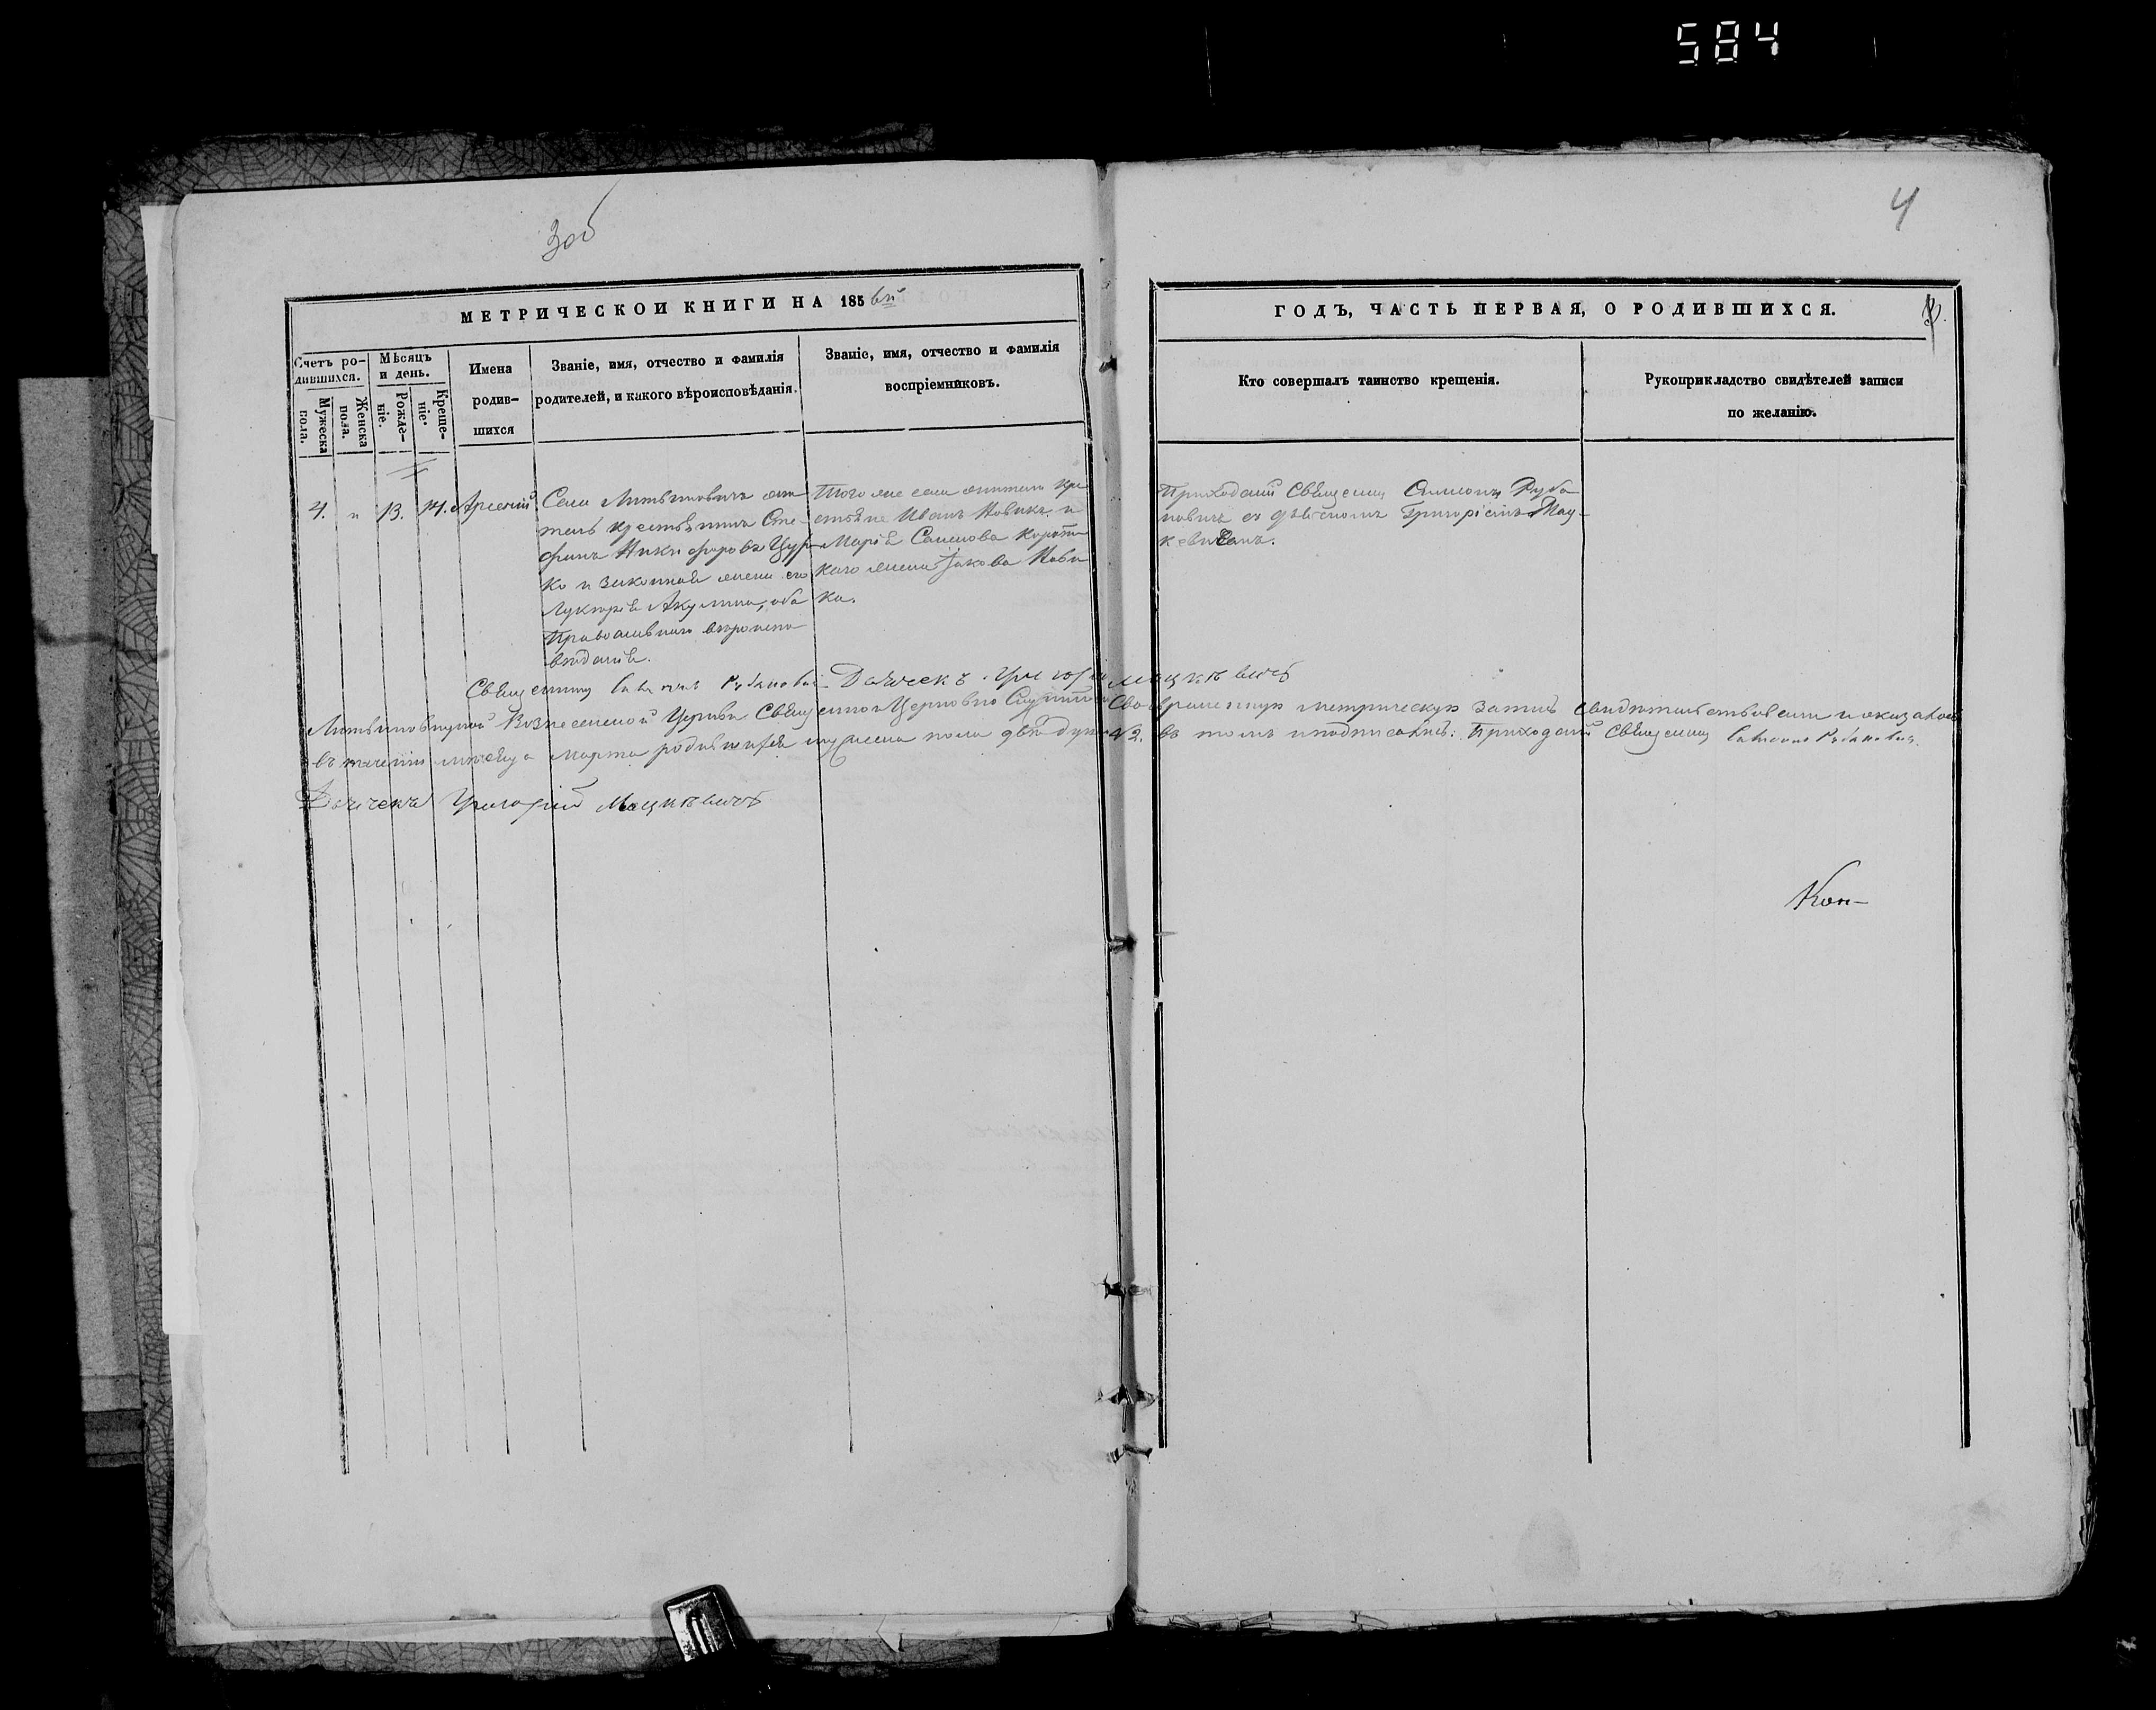 584
3об
4
МЕТРИЧЕСКОЙ КНИГИ НА 1856й
ГОДЪ, ЧАСТЬ ПЕРВАЯ, О РОДИВШИХСЯ.
Счетъ ро-
дившихся.
Мужеска
пола.
Женска
пола.
Мѣсяцъ
и день.
Рожде-
ніе.
Креще-
ніе.
Имена
родив-
шихся
Званіе, имя, отчество и фамилія
родителей, и какого вѣроисповѣданія.
Званіе, имя, отчество и фамилія
воспріемниковъ.
Кто совершалъ таинство крещенія.
Рукоприкладство свидѣтелей записи
по желанію.
4. " 13. 14. Арсеній
Села Литвиновичъ жи-
тель крестьянинъ Сте-
фанъ Никифоровъ Цур-
ко и законная жена его
Лукерія Акулина, оба
Православнаго вѣроиспо-
вѣданія.
Того же села жители кре-
стьяне Иванъ Новикъ и
Марія Самсонова
жена Іакова Нови-
ка.
Приходскій Священникъ Симеонъ Руба-
новичъ съ дьячкомъ Григоріемъ Мац-
кевичемъ.
Священникъ Симеонъ Рубановичъ Дьячекъ Григорій Мацкевичъ
Вознесенской Церкви Священно и Церковно Служители Своевременную метрическую запись свидѣтельствовали и оказалось
въ теченіи мѣсяца Марта родившихся мужеска пола двѣ души 2. въ томъ и подписались: Приходскій Священникъ Симеонъ Рубановичъ
Дьячекъ Григорій Мацкевичъ
Кон-